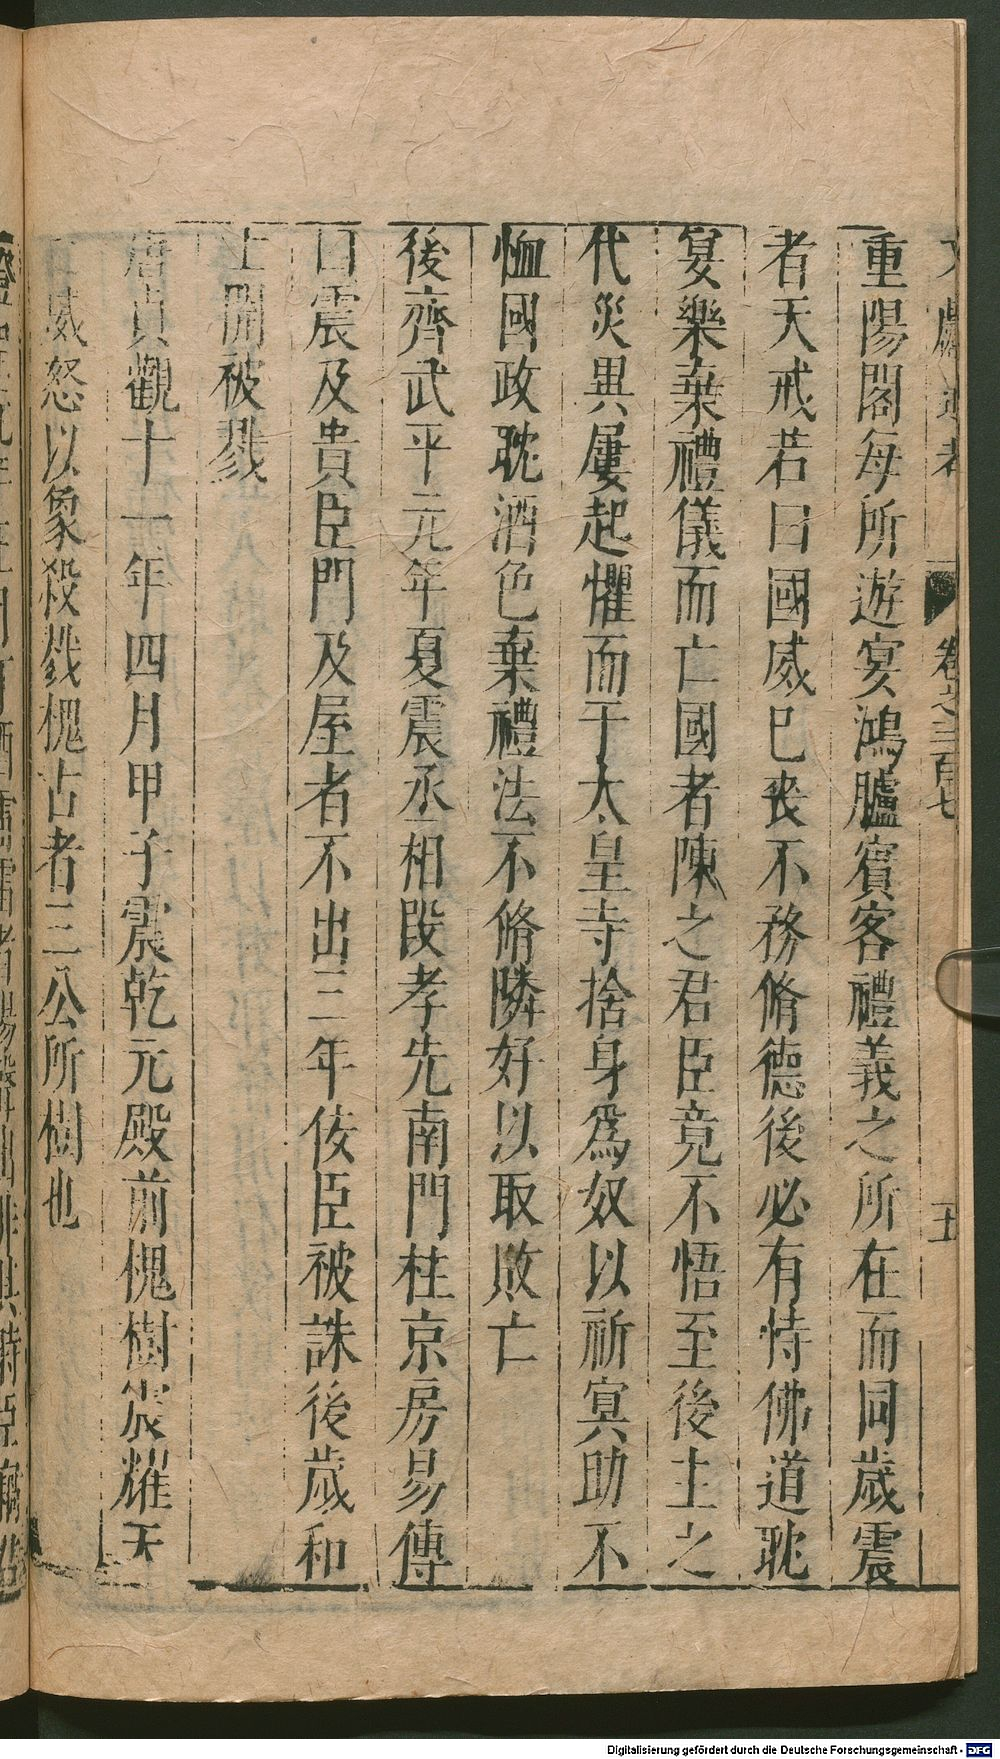 文獻通考 卷之三百七
重陽閣每所遊宴鴻臚賓客禮義之所在而同歲震
者天戒若曰國威已喪不務脩德後必有恃佛道耽
宴樂棄禮儀而亡國者陳之君臣竟不悟至後主之
代災異屢起懼而于太皇寺捨身爲奴以祈冥助不
恤國政耽酒色棄禮法不脩隣好以取敗亡
後齊武平元年夏震丞相段孝先南門柱京房易傳
曰震及貴臣門及屋者不出三年佞臣被誅後歲和
士開被戮
唐貞觀十一年四月甲子震乾元殿前槐樹震耀天
威怒以象殺戮槐古者三公所樹也
Digitalisierung gefördert durch die Deutsche Forschungsgemeinschaft - DFG